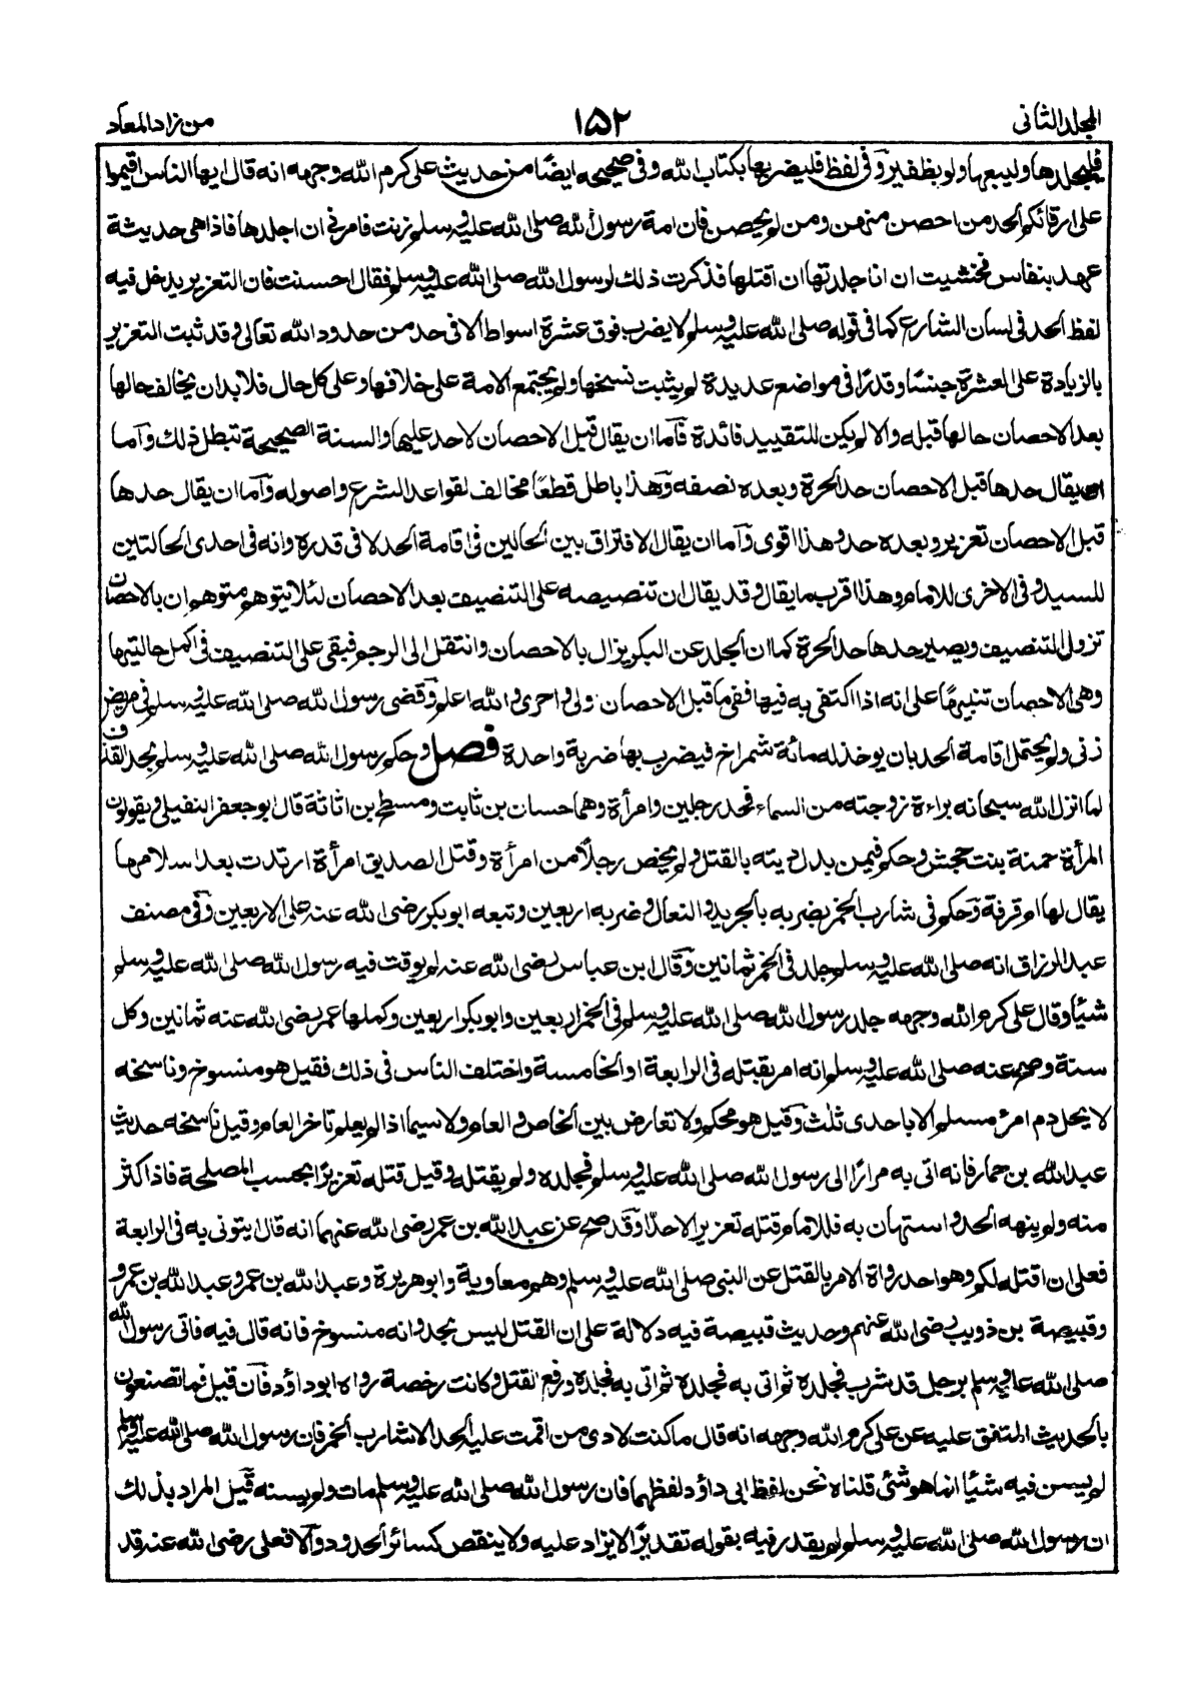 المجلد الثانى
١٥٢
من زاد المعاد
فليجلدها وليبعها ولو بظفير وفى لفظ فليضربها بكتاب الله وفى صحيحه ايضًا من حديث على كرم الله وجهه انه قال ايها الناس اقيموا
على ارقائكم الحد من احصن منهن ومن لم يحصن فان امة رسول الله صلى الله عليه وسلم زنت فامرنى ان اجلدها فاذا هى حديثة
عهد بنفاس فخشيت ان انا جلدتها ان اقتلها فذكرت ذلك لرسول الله صلى الله عليه وسلم فقال احسنت فان التعزير يدخل فيه
لفظ الحد فى لسان الشارع كما فى قوله صلى الله عليه وسلم لا يضرب فوق عشرة اسواط الا فى حد من حدود الله تعالى وقد ثبت التعزير
بالزيادة على العشرة جنسًا وقدرًا فى مواضع عديدة لم يثبت نسخها ولم يجتمع الامة على خلافها وعلى كل حال فلا بد ان يخالف حالها
بعد الاحصان حالها قبله والا لم يكن للتقييد فائدة فآما ان يقال قبل الاحصان لا حد عليها والسنة الصحيحة تبطل ذلك وآما
ان يقال حدها قبل الاحصان حد الحرة وبعده نصفه وهذا باطل قطعًا مخالف لقواعد الشرع واصوله وآما ان يقال حدها
قبل الاحصان تعزير وبعده حد وهذا اقوى وآما ان يقال الافتراق بين الحالين فى اقامة الحد لا فى قدره وانه فى احدى الحالتين
للسيد وفى الاخرى للامام وهذا اقرب ما يقال وقد يقال ان تنصيصه على التنصيف بعد الاحصان لئلا يتوهم متوهم ان بالاحصان
تزول التنصيف ويصير حدها حد الحرة كما ان الجلد عن البكر يزال بالاحصان وانتقل الى الرجم فبقى على التنصيف فى اكمل حالتيها
وهى الاحصان تنبيهًا على انه اذا اكتفى به فيها ففى ما قبل الاحصان اولى واحرى والله اعلم وقضى رسول الله صلى الله عليه وسلم فى مريض
زنى ولم يحتمل اقامة الحد بان يوخذ له مائة شمراخ فيضرب بها ضربة واحدة فصل وحكم رسول الله صلى الله عليه وسلم بحد القذف
لما انزل الله سبحانه براءة زوجته من السماء فحد رجلين وامرأة وهما حسان بن ثابت ومسطح بن اثاثة قال ابو جعفر النفيلى ويقولون
المرأة حمنة بنت جحش وحكم فيمن بدل دينه بالقتل ولم يخص رجلاً من امرأة وقتل الصديق امرأة ارتدت بعد اسلامها
يقال لها ام قرفة وحكم فى شارب الخمر بضربه بالجريد والنعال وضربه اربعين وتبعه ابو بكر رضى الله عنه على الاربعين وفى مصنف
عبد الرزاق انه صلى الله عليه وسلم جلد فى الخمر ثمانين وقال ابن عباس رضى الله عنه لم يوقت فيه رسول الله صلى الله عليه وسلم
شيئا وقال على كرم الله وجهه جلد رسول الله صلى الله عليه وسلم فى الخمر اربعين وابو بكر اربعين وكملها عمر رضى الله عنه ثمانين وكل
سنة وصح عنه صلى الله عليه وسلم انه امر بقتله فى الرابعة او الخامسة واختلف الناس فى ذلك فقيل هو منسوخ وناسخه
لا يحل دم امرئ مسلم الا باحدى ثلث وقيل هو محكم ولا تعارض بين الخاص والعام ولا سيما اذا لم يعلم تاخر العام وقيل ناسخه حديث
عبد الله بن حمار فانه اتى به مرارًا الى رسول الله صلى الله عليه وسلم فجلده ولم يقتله وقيل قتله تعزيرًا بحسب المصلحة فاذا كثر
منه ولم ينهه الحد واستهان به فللامام قتله تعزيرا لاحدًا وقد صح عن عبد الله بن عمر رضى الله عنهما انه قال ايتونى به فى الرابعة
فعلى ان اقتله لكم وهو احد رواة الامر بالقتل عن النبى صلى الله عليه وسلم وهم معاوية وابو هريرة وعبد الله بن عمر وعبد الله بن عمرو
وقبيصة بن ذويب رضى الله عنهم وحديث قبيصة فيه دلالة على ان القتل ليس بحد وانه منسوخ فانه قال فيه فاتى رسول الله
صلى الله عليه وسلم برجل قد شرب فجلده ثم اتى به فجلده ثم اتى به فجلده ورفع القتل وكانت رخصة رواه ابو داؤد فآن قيل فما تصنعون
بالحديث المتفق عليه عن على كرم الله وجهه انه قال ما كنت لادى من اقمت عليه الحد الا شارب الخمر فان رسول الله صلى الله عليه وسلم
لم يسن فيه شيئًا انما هو شئ قلناه نحن لفظ ابى داؤد لفظهما فان رسول الله صلى الله عليه وسلم مات ولم يسنه قيل المراد بذلك
ان رسول الله صلى الله عليه وسلم لم يقدر فيه بقوله تقديرًا لا يزاد عليه ولا ينقص كسائر الحدود والا فعلى رضى الله عنه قد